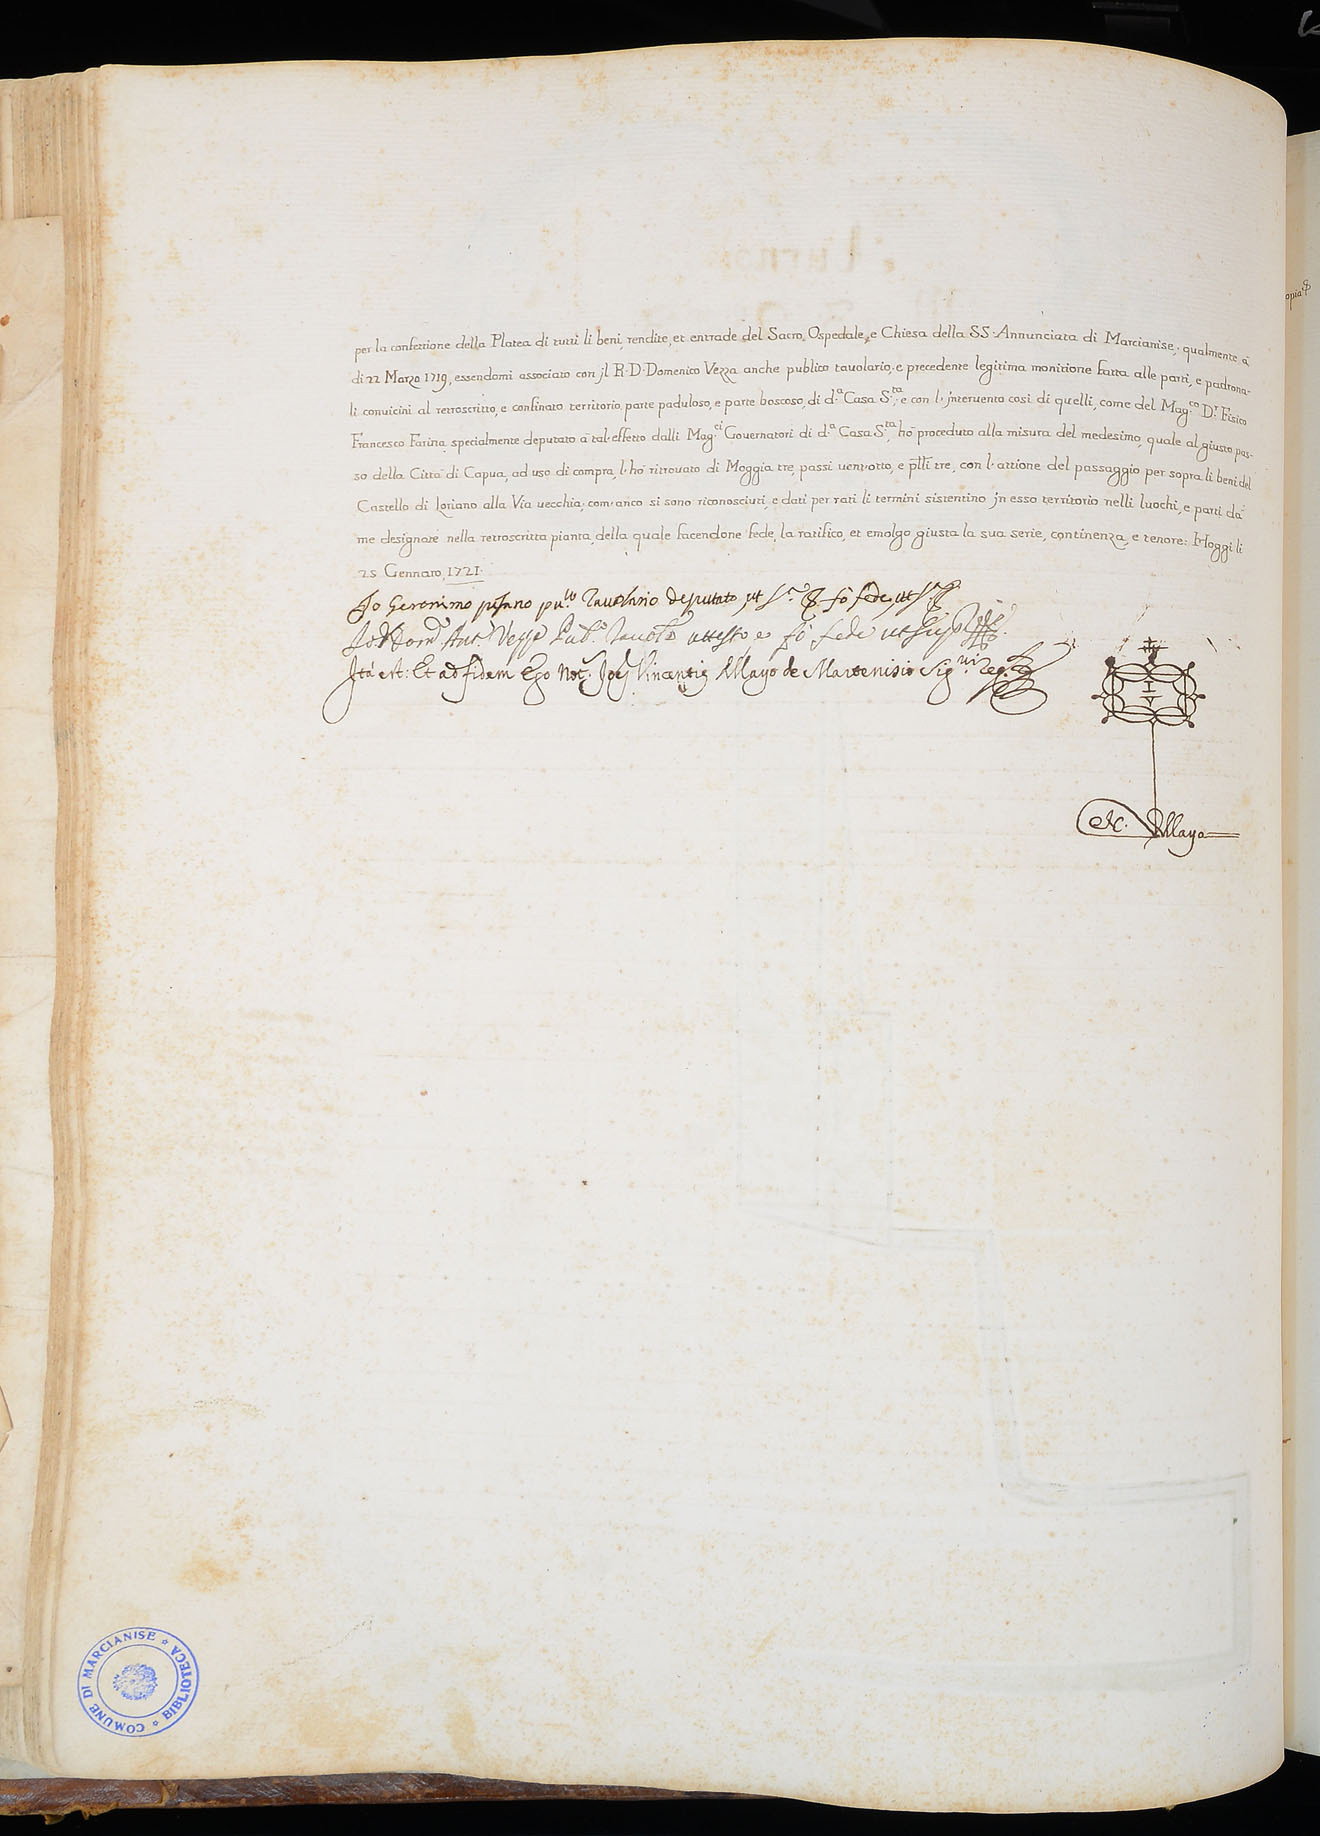 per la confettione della Platea di tutti li beni, rendite, et entrade del Sacro Ospedale, e Chiesa della SS. Annunciata di Marcianise, qualmente à
di 22 Marzo 1719, essendomi associato con jl R. D. Domenico Vezza anche publico tavolario, e precedente legitima monitione fatta alle parti, e padrona-
li convicini al retroscritto, e confinato territorio, parte paduloso, e parte boscoso, di d.ª Casa S.ta, e con l'jntervento così di quelli, come del Mag.co D.r Fisico
Francesco Farina, specialmente deputato à tal'effetto dalli Mag.ci Governatori di d.ª Casa S.ta, hò proceduto alla misura del medesimo, quale al giusto pas-
so della Città di Capua, ad uso di compra, l'hò ritrovato di Moggia tre, passi vent'otto, e p̄tti tre, con l'attione del passaggio per sopra li beni del
Castello di Loriano alla Via vecchia; com'anco si sono riconosciuti, e dati per rati li termini sistentino jn esso territorio nelli luochi, e parti dà
me designate nella retroscritta pianta, della quale facendone fede, la ratifico, et emolgo giusta la sua serie, continenza, e tenore: Hoggi li
25 Gennaro, 1721.
Io Geronimo pisano pu.co Tavolario deputato ut s.ª fò fede, ut s.ª
Io D. Dom.co Ant.o Vezza Pub.o Tavol.o attesto, e fò fede ut sup.ª
Ità est: Et ad fidem Ego Not.s Jos Vincentis Mayo de Martenisio sig.vi reg.s
I V
N. Mayo
opia
COMUNE DI MARCIANISE * BIBLIOTECA *